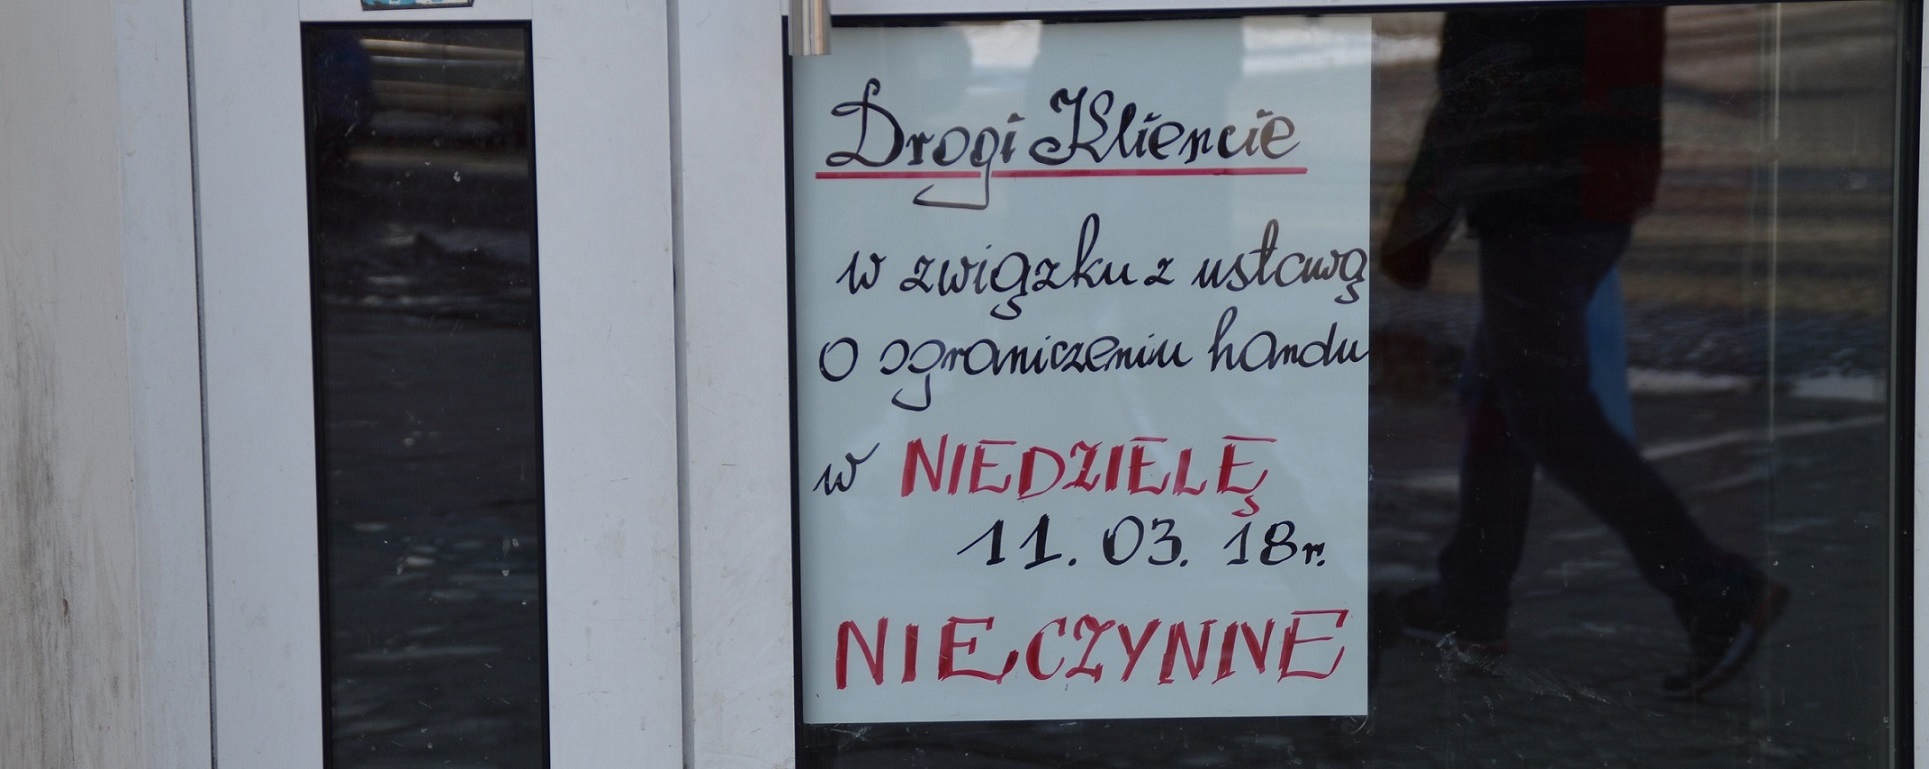 Drogi Kliencie
w związku z ustawą
o ograniczeniu handu
w NIEDZIELĘ
11. 03. 18r.
NIECZYNNE